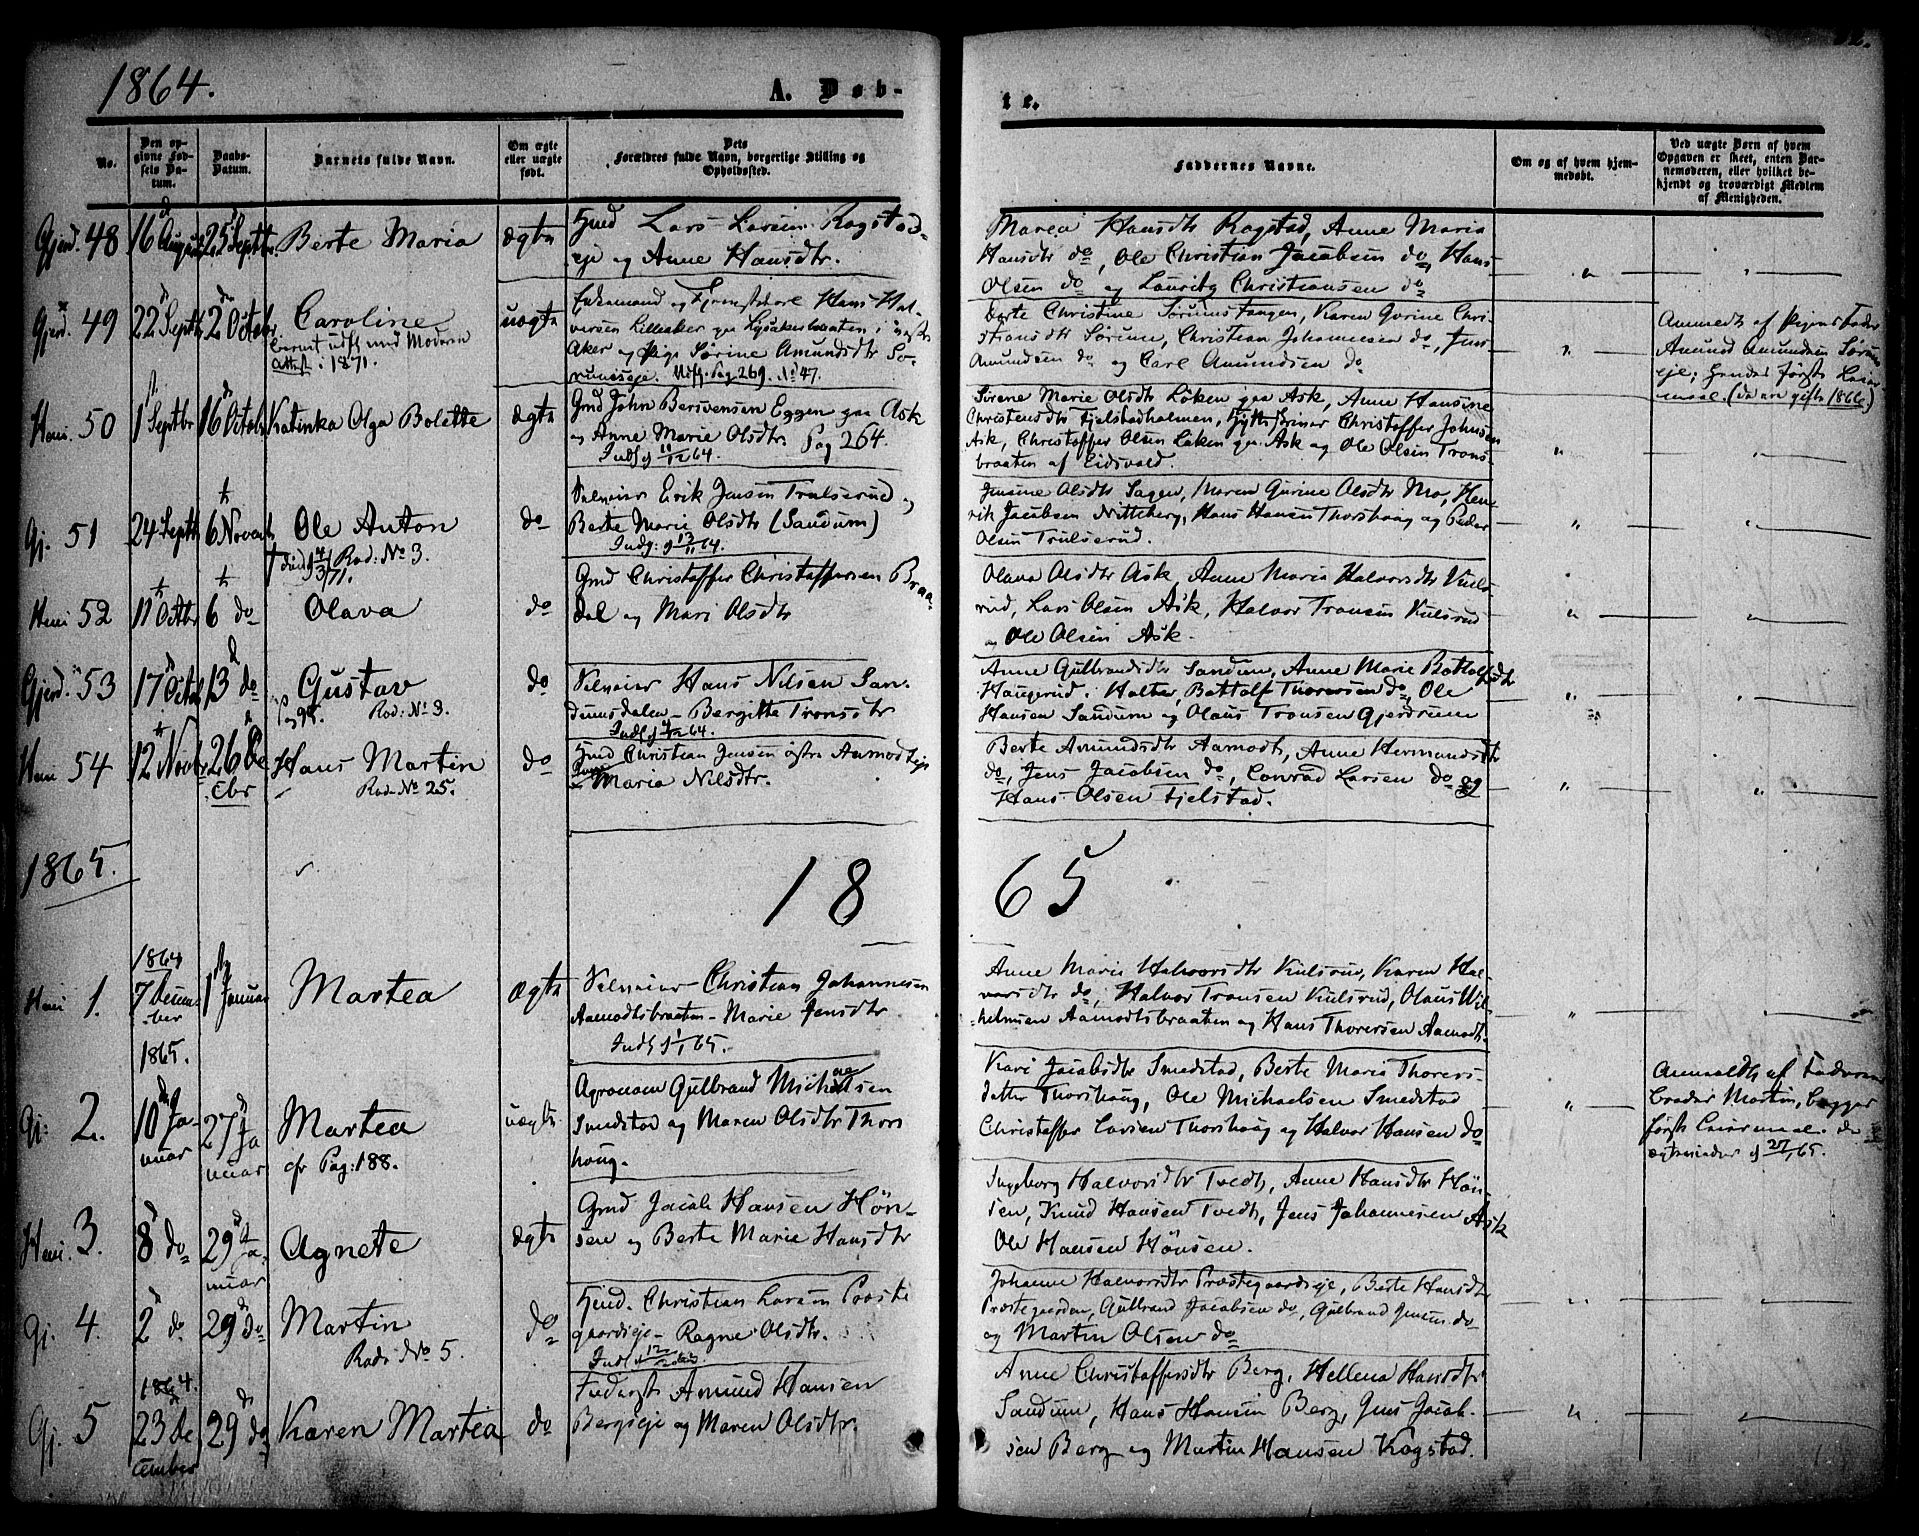 1864.
A. Døb-
te.
No.
Den op-
givne Fød-
sels Da-
tum.
Daabs-
Datum.
Barnets fulde Navn.
Om ægte
eller uægte
født.
Dets
Forældres fulde Navn, borgerlige Stilling og
Opholdssted.
Faddernes Navne.
Om og af hvem hjem-
medøbt.
Ved uægte Børn af hvem
Opgaven er skeet, enten Bar-
nemoderen, eller hvilket be-
kjendt og troværdigt Medlem
af Menigheden.
Gjerd. 48
16 August
25 Septbr.
Berte Maria
ægte
Hmd Lars Larsen Rogstad-
eje og Anne Hansdtr.
Marea Hansdtr Rogstad, Anne Maria
Hansdtr do, Ole Christian Jacobsen do, Hans
Olsen do og Lauritz Christiansen do
Gjerd. 49
22 Septbr
2 Octobr
Caroline
udfl. med Moderen
Attest. 1871.
uægte
Enkemand og Hans Hal-
versen Lilleaker paa Lysakerbraaten i
Aker og Pige Sørine Amundsdtr Sø-
rumseje. Udfl. Pag. 269. No 47.
Dorte Christine Sørumstangen, Karen Gurine Chri-
stiansdtr Sørum, Christian Johannesen do, Jens
Amundsen do og Carl Amundsen do
Anmeldt af Pigens Fader
Amund Amundsen Sørums-
eje; hendes første Leier-
maal. (da ere gifte 1866)
Heni. 50
1 Septbr
16 Octobr
Katinka Olga Bolette
ægte
Gmd John Bersvensen Eggen paa Ask
og Anne Marie Olsdtr. Pag 264.
Indl. 11/12 64.
Sirene Marie Olsdtr Løken paa Ask, Anne Hansine
Christensdtr Fjelstadholmen, Christoffer Johnsen
Ask, Christoffer Olsen Løken paa Ask og Ole Olsen Trons-
braaten af Eidsvold.
Gj. 51
24 Septbr
6 Novembr
Ole Anton
† død 4/3 71. Rod: No 3.
do
Selveier Erik Jensen Trulserud og
Berte Marie Olsdtr (Sandum)
Indg: 13/11 64.
Jensine Olsdtr Sagen, Maren Gurine Olsdtr Mo, Hen-
rik Jacobsen Nitteberg, Hans Hansen Thorshaug og Peder
Olsen Trulserud.
Heni 52
11 Octbr
6 do
Olava
do
Gmd Christoffer Christoffersen Braa-
dal og Mari Olsdtr
Olava Olsdtr Ask, Anne Maria Halvorsdtr Kuls-
rud, Lars Olsen Ask, Halvor Tronsen Kulsrud
og Ole Olsen Ask.
Gjerd. 53
17 Octob
13 do
Gustav
Pag 98. Rod: No 3.
do
Selveier Hans Nilsen San-
dumsdalen - Bergitte Tronsdtr
Anne Gulbrandsdtr Sandum, Anne Marie Bottolfsdtr
Haugerud. Halter, Bottolf Thoversen do, Ole
Hansen Sandum og Olaus Tronsen Gjerdrum
Heni 54
12 Novbr
26 De-
cbr
Hans Martin
Rod: No 25.
do
Hmd Christian Jensen østre Aamodteje
Maria Nilsdtr.
Berte Amundsdtr Aamodt, Anne Hermandsdtr
do, Jens Jacobsen do, Conrad Larsen do og
Hans Olsen Fjelstad.
1865.
18 65
Heni 1.
1864
7 Decem-
ber
1 Januar
Martea
ægte
Selveier Christian Johannesen
Aamodtsbraaten - Marie Jensdtr
Indl. 1/1 65.
Anne Marie Halvorsdtr Kulsrud, Karen Hal-
vorsdtr do, Halvor Tronsen Kulsrud, Olaus Wil-
helmsen Aamodtsbraaten og Hans Thorersen Aamodt.
Gj. 2.
1865.
10 Ja-
nuar
27 Ja-
nuar
Martea
cfr Pag: 188.
uægte
Agronom Gulbrand Michaelsen
Smedstad og Maren Olsdtr Thors-
houg.
Kari Jacobsdtr Smedstad, Berte Maria Thorers-
datter Thorshoug, Ole Michaelsen Smedstad
Christoffer Larsen Thorshoug og Halvor Hansen do
Anmeldt af Faderens
Broder Martin, begges
første Leiermaal. de
ægteviedes 27/1 65.
Heni 3.
8 do
29 Ja-
nuar
Agnete
ægte
Gmd Jacob Hansen Høn-
sen og Berte Marie Hansdtr
Ingeborg Halvorsdtr Tvedt, Anne Hansdtr Høn-
sen, Knud Hansen Tvedt, Jens Johannesen Ask
Ole Hansen Hønsen.
Gj. 4.
2 do
29 do
Martin
Rod: No 5.
do
Hmd. Christian Larsen Præste-
gaardseje - Ragne Olsdtr.
Johanne Halvorsdtr Præstegaardseje, Berte Hansdtr
Præstegaarden, Gulbrand Jacobsen do, Gulbrand Jensen do
og Martin Olsen do
Gj. 5
1864.
23 De-
cember
29 do
Karen Martea
do
Føderaads Amund Hansen
Bergseje og Maren Olsdtr.
Anne Christoffersdtr Berg, Hellena Hansdtr
Sandum, Hans Hansen Berg, Jens Jacob-
sen Berg og Martin Hansen Rogstad.